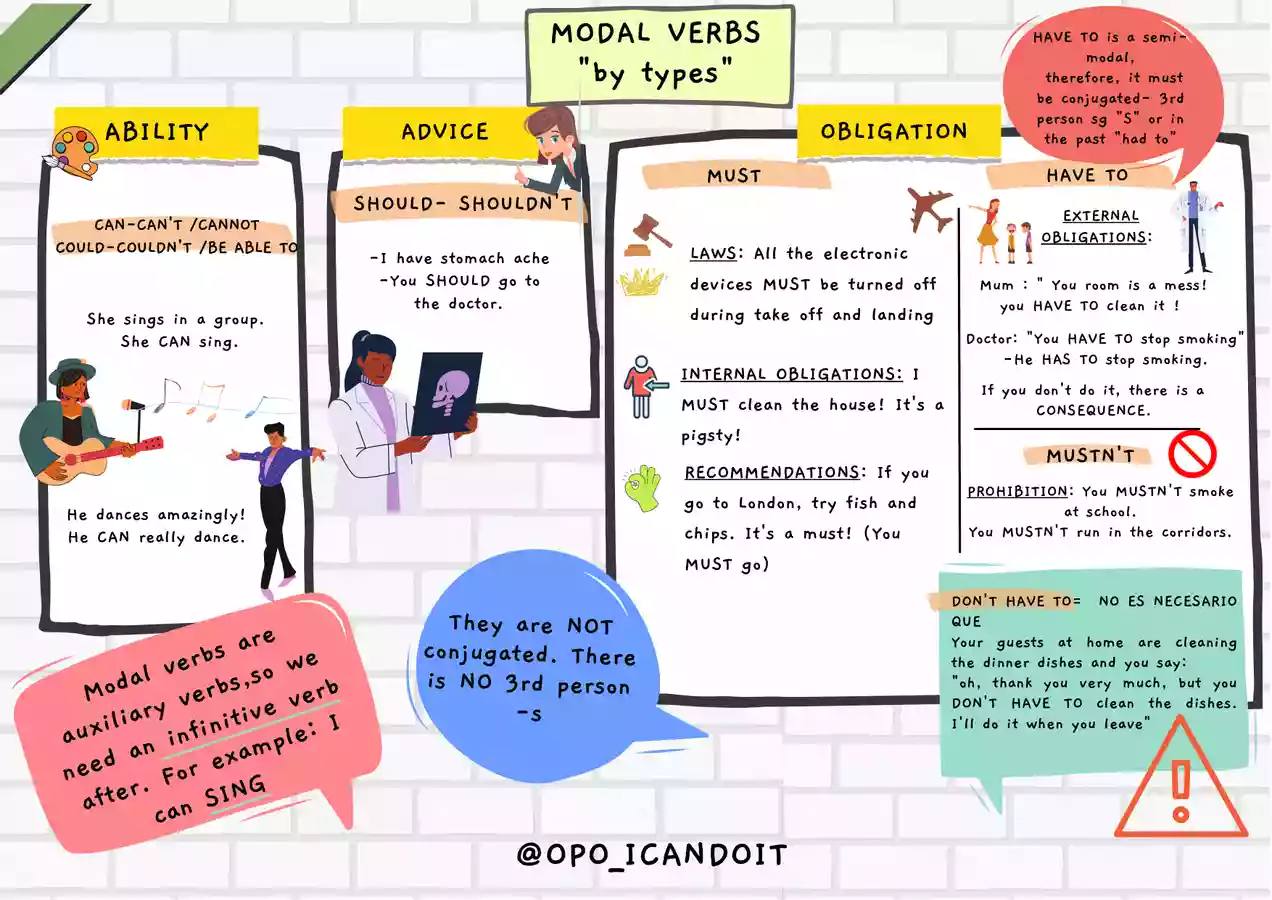 MODAL VERBS
"by types"
ABILITY
CAN-CAN'T /CANNOT
COULD-COULDN'T /BE ABLE TO
She sings in a group.
She CAN sing.
He dances amazingly!
He CAN really dance.
ADVICE
SHOULD- SHOULDN'T
-I have stomach ache
-You SHOULD go to
the doctor.
OBLIGATION
MUST
LAWS: All the electronic
devices MUST be turned off
during take off and landing
INTERNAL OBLIGATIONS: I
MUST clean the house! It's a
pigsty!
RECOMMENDATIONS: If you
go to London, try fish and
chips. It's a must! (You
MUST go)
HAVE TO is a semi-
modal,
therefore, it must
be conjugated- 3rd
person sg "S" or in
the past "had to"
HAVE TO
EXTERNAL
OBLIGATIONS:
Mum : " You room is a mess!
you HAVE TO clean it !
Doctor: "You HAVE TO stop smoking"
-He HAS TO stop smoking.
If you don't do it, there is a
CONSEQUENCE.
MUSTN'T
PROHIBITION: You MUSTN'T smoke
at school.
You MUSTN'T run in the corridors.
DON'T HAVE TO= NO ES NECESARIO
QUE
Your guests at home are cleaning
the dinner dishes and you say:
"oh, thank you very much, but you
DON'T HAVE TO clean the dishes.
I'll do it when you leave"
Modal verbs are
auxiliary verbs,so we
need an infinitive verb
after. For example: I
can SING
They are NOT
conjugated. There
is NO 3rd person
-s
@OPO_ICANDOIT